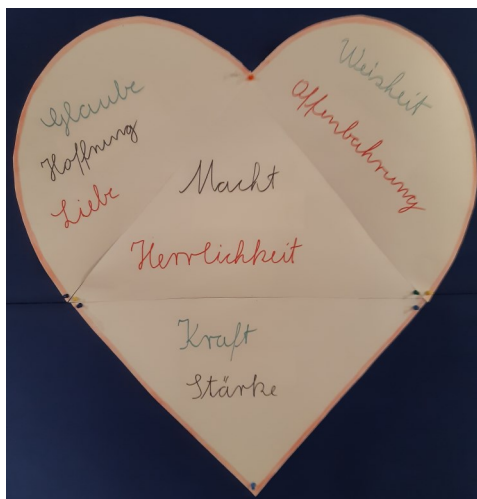 Glaube
Hoffnung
Liebe
Weisheit
Offenbahrung
Macht
Herrlichkeit
Kraft
Stärke